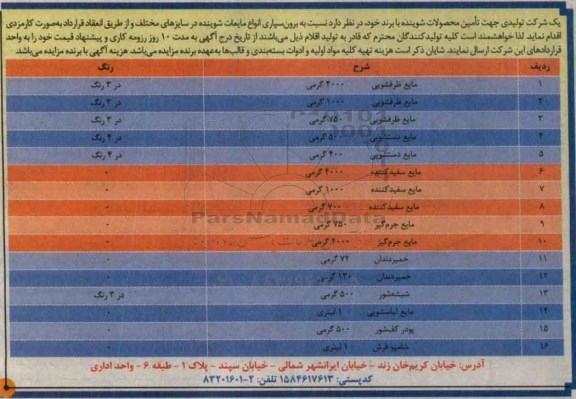 یک شرکت تولیدی جهت تأمین محصولات شوینده با برند خود، در نظر دارد نسبت به برون‌سپاری انواع مایعات شوینده در سایزهای مختلف و از طریق انعقاد قرارداد به‌صورت کارمزدی
اقدام نماید. لذا خواهشمند است کلیه تولیدکنندگان محترم که قادر به تولید اقلام ذیل می‌باشند از تاریخ درج آگهی به مدت ۱۰ روز رزومه کاری و پیشنهاد قیمت خود را به واحد
قراردادهای این شرکت ارسال نمایند. شایان ذکر است هزینه تهیه کلیه مواد اولیه و ادوات بسته‌بندی و قالب‌ها به‌عهده برنده مزایده می‌باشد. هزینه آگهی با برنده مزایده می‌باشد.
ردیف شرح رنگ
۱ مایع ظرفشویی ۴۰۰۰ گرمی در ۳ رنگ
۲ مایع ظرفشویی ۱۰۰۰ گرمی در ۳ رنگ
۳ مایع ظرفشویی ۷۵۰ گرمی در ۳ رنگ
۴ مایع دستشویی ۵۰۰ گرمی در ۴ رنگ
۵ مایع دستشویی ۴۰۰ گرمی در ۴ رنگ
۶ مایع سفیدکننده ۴۰۰۰ گرمی ۰
۷ مایع سفیدکننده ۱۰۰۰ گرمی ۰
۸ مایع سفیدکننده ۷۰۰ گرمی ۰
ParsNamadData
۹ مایع جرم‌گیر ۷۵۰ گرمی ۰
۱۰ مایع جرم‌گیر ۴۰۰۰ گرمی ۰
۱۱ خمیردندان ۷۲ گرمی ۰
۱۲ خمیردندان ۱۳۰ گرمی ۰
۱۳ شیشه‌شور ۵۰۰ گرمی در ۳ رنگ
۱۴ مایع لباسشویی ۱ لیتری ۰
۱۵ پودر کفشور ۵۰۰ گرمی ۰
۱۶ شامپو فرش ۱ لیتری ۰
آدرس: خیابان کریم‌خان زند - خیابان ایرانشهر شمالی - خیابان سپند - پلاک ۱ - طبقه ۶ - واحد اداری
کدپستی: ۱۵۸۴۶۱۷۶۱۳ تلفن: ۲-۸۳۲۰۱۶۰۱